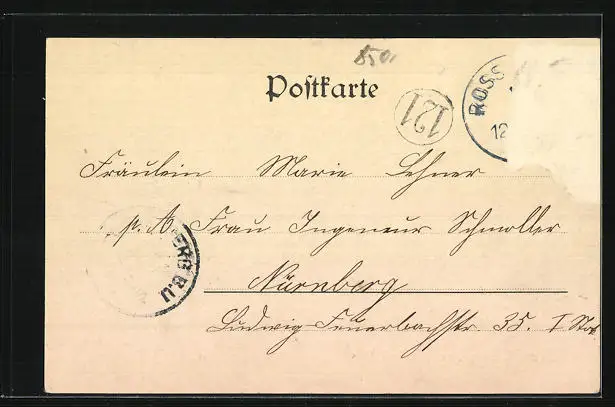 850.
Postkarte
121
ROSS
12
Fräulein Marie Lehner
p. A. Frau Ingeneur Schmoller
Nürnberg
Ludwig Feuerbachstr. 35. I Stok
ERG B.U